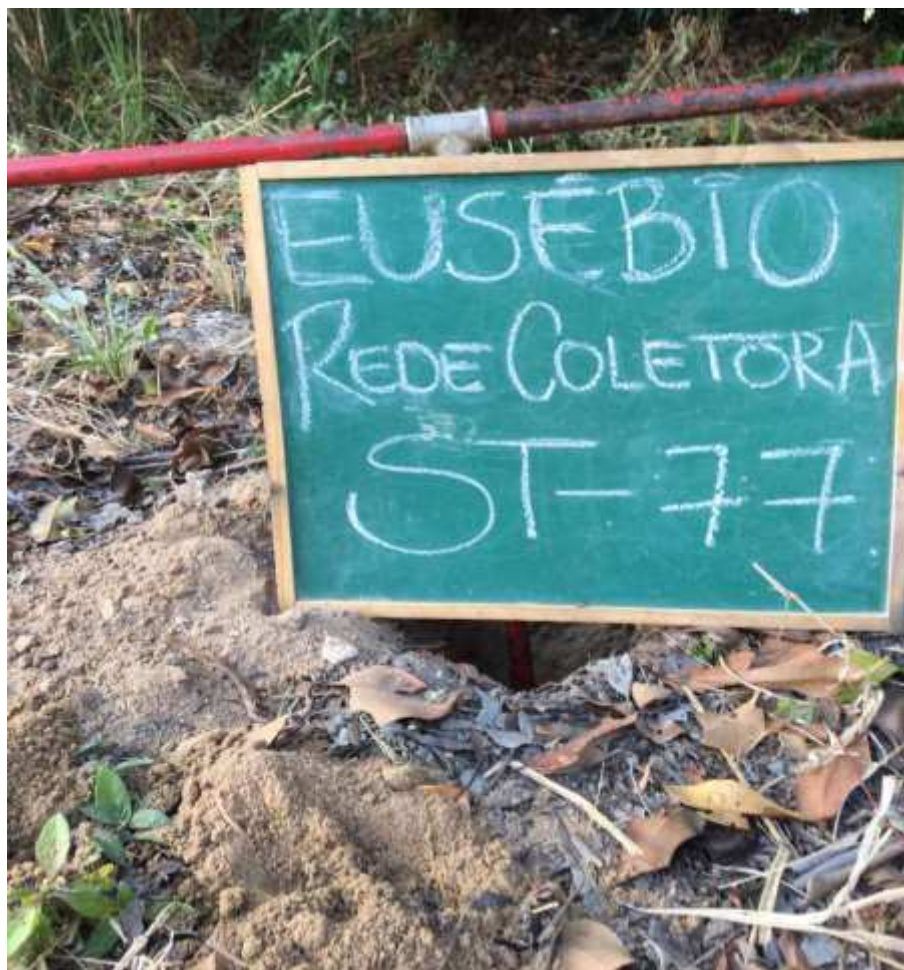 EUSÉBIO
REDE COLETORA
ST-77